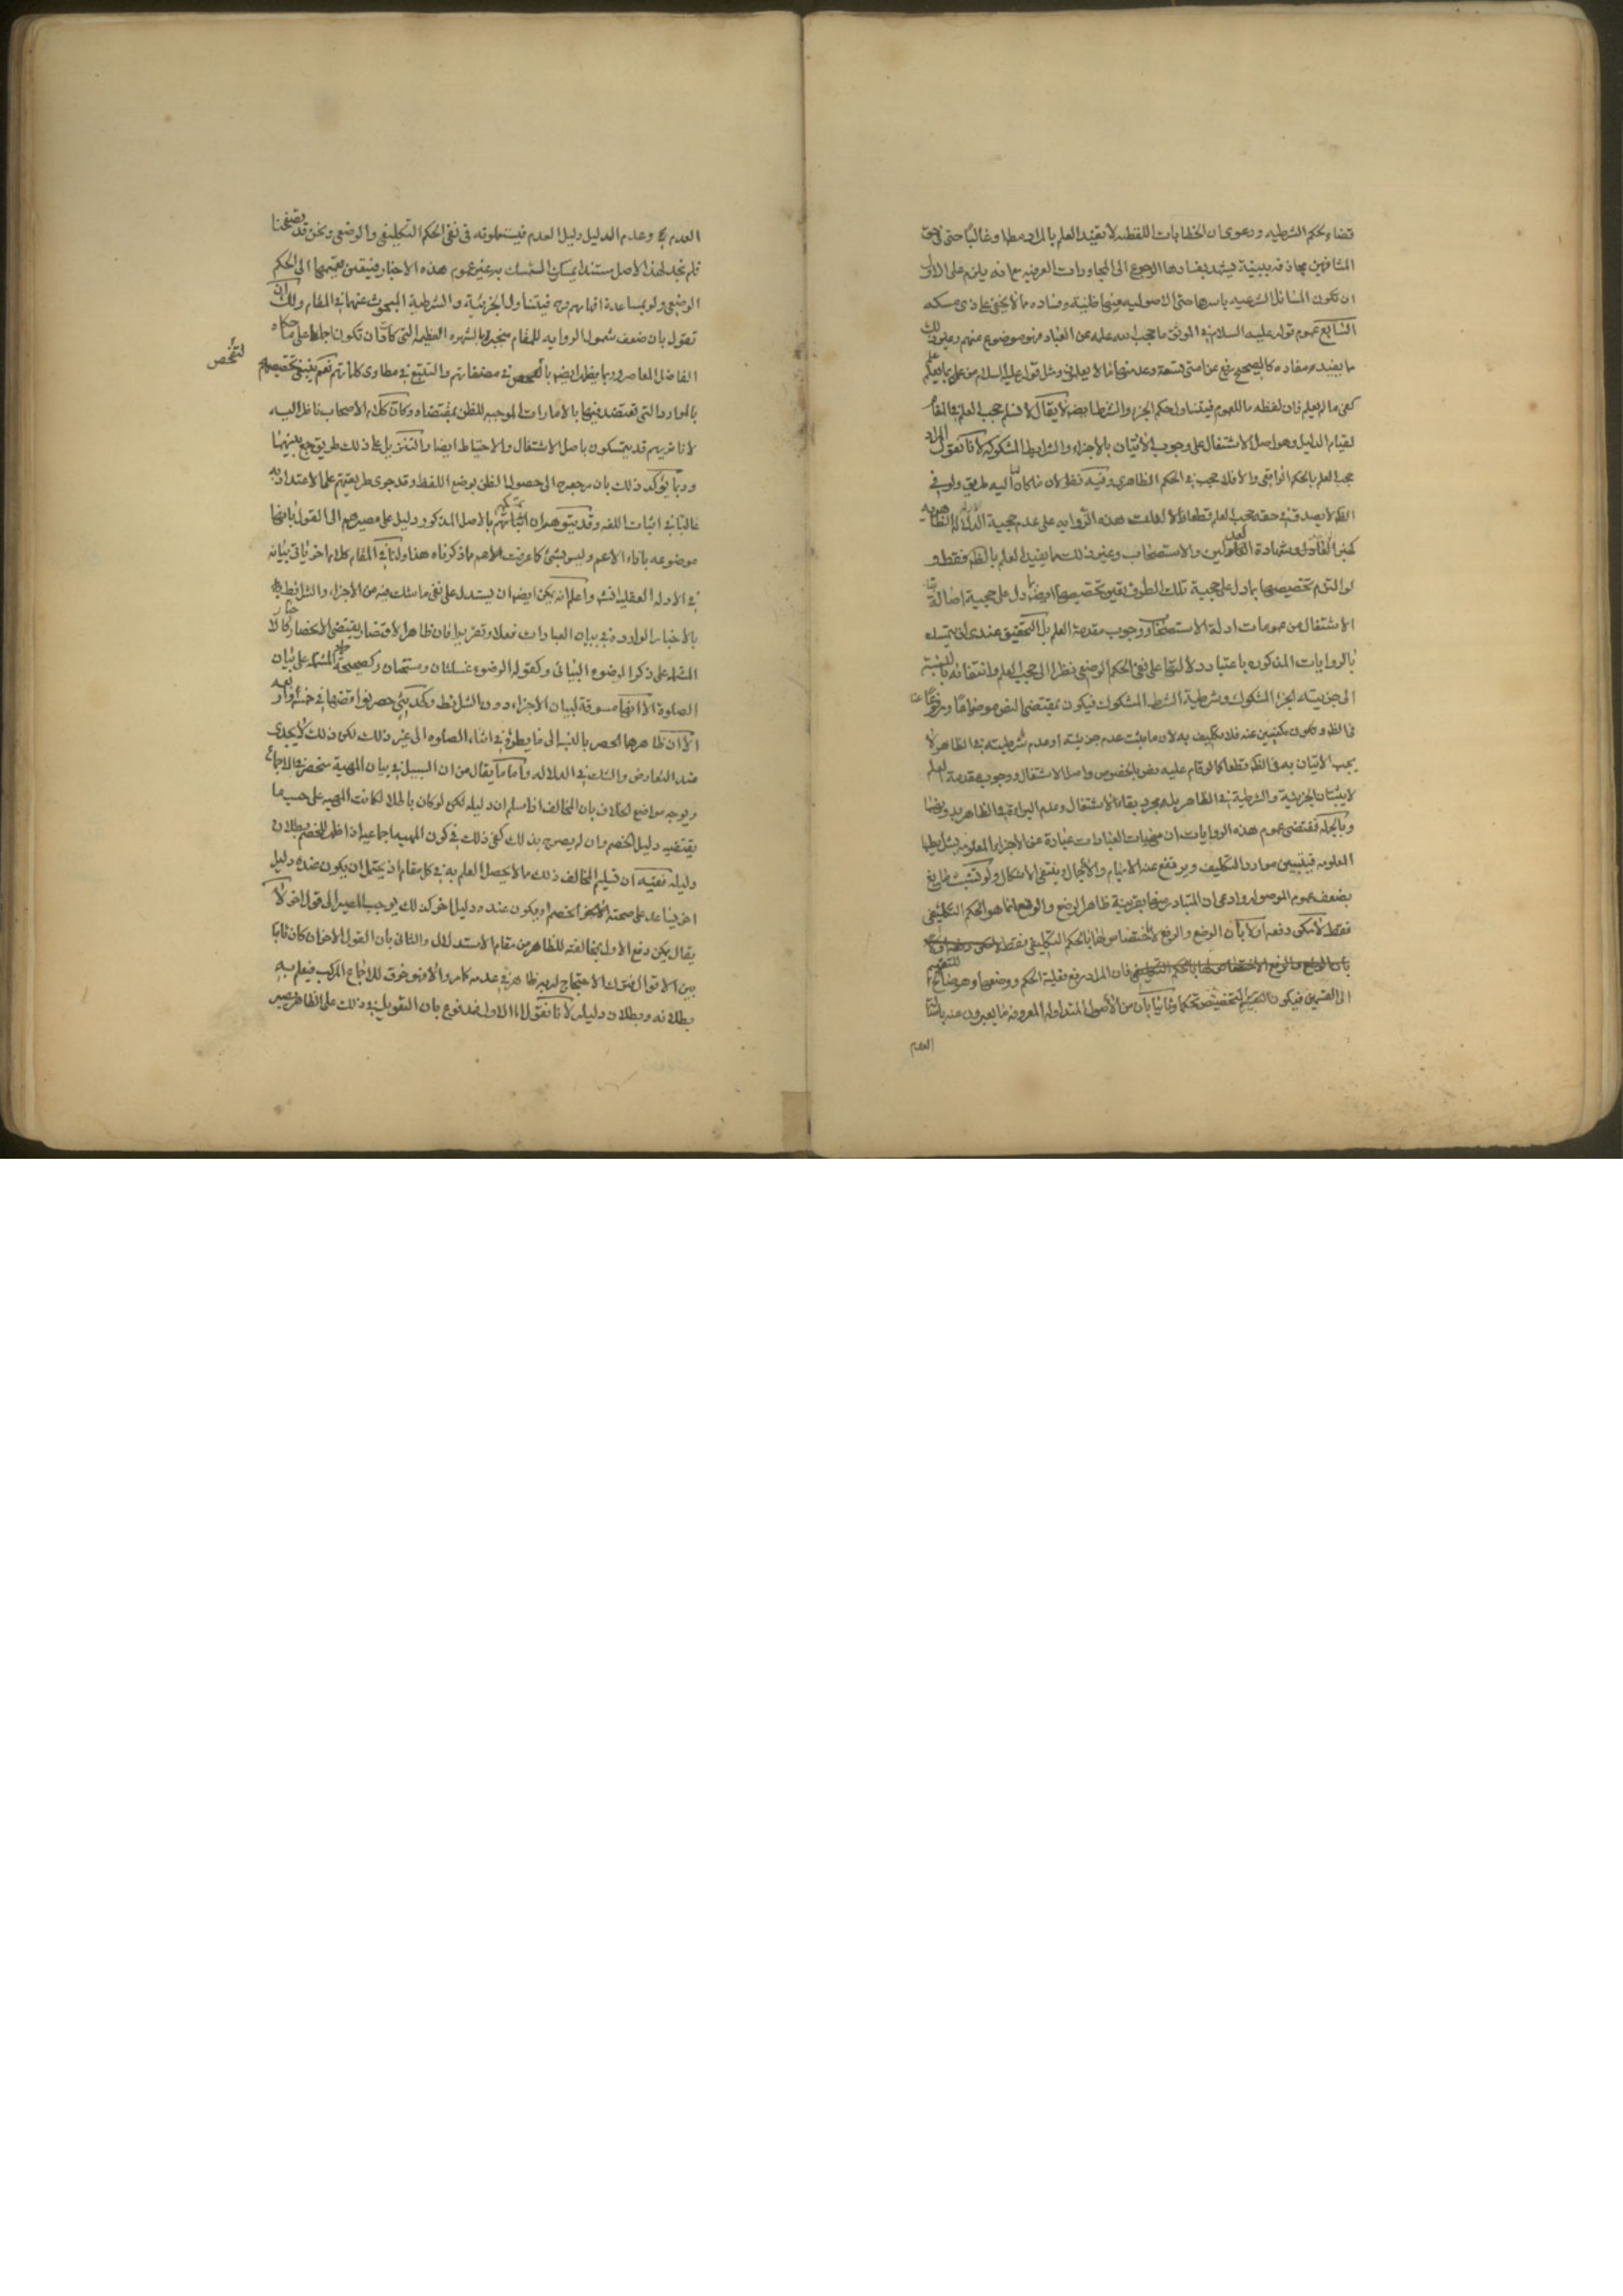 قضاء لحكم الشرطيه ودعوى ان الخطابات اللفظيه لا تفيد العلم بالمراد مطلقا وغالبا حتى في حق
المشافهين مجازفة بينة يشهد بفسادها الرجوع الى المحاورات العرفيه مع انه يلزم على الاول
ان تكون المسائل الشرعيه باسرها حتى الاصوليه منها ظنية وفساده مما لا يخفى على ذي مسكه
السابع عموم قوله عليه السلام في الموثق ما حجب الله علمه عن العباد فهو موضوع عنهم
ما يفيد مفاده كالصحيح رفع عن امتي تسعة وعد منها ما لا يعلمون ومثل قوله عليه السلام من عمل بما علم
كفى ما لم يعلم فان لفظه ما للعموم فيتناول حكم الجزء والشرط ايضا لا يقال لا نسلم حجب العلم في المقام
لقيام الدليل وهو اصل الاشتغال على وجوب الاتيان بالاجزاء والشرايط المشكوكه لانا نقول المراد
حجب العلم بالحكم الواقعي والا فلا حجب في الحكم الظاهري وفيه نظر لان ما كان اليه طريق ولو في
الظ لا يصدق في حقه حجب العلم قطعا والا لدلت هذه الروايه على عدم حجية الادلة الظاهريه
كخبر العادل وشهادة العدلين والاستصحاب وغير ذلك مما يفيد العلم بالظ فقط و
لو التزم تخصيصها بما دل على حجية تلك الطرق تعين تخصيصها ايضا بما دل على حجية اصالة
الاشتغال من عمومات ادلة الاستصحاب ووجوب مقدمة العلم بل التحقيق عندي ان يتمسك
بالروايات المذكوره باعتبار دلالتها على نفي الحكم الوضعي نظرا الى حجب العلم وانتفائه بالنسبة
الى جزئيته الجزء المشكوك وشرطية الشرط المشكوك فيكون بمقتضى النص موضوعا ومرفوعا عنا
في الظ و مكلفين عنه فلا تكليف به لان ما ثبت عدم جزئيته او عدم شرطيته في الظاهر لا
يجب الاتيان به في الظ قطعا كما لو قام عليه نص بالخصوص واصل الاشتغال ووجوب مقدمة العلم
لا يثبتان الجزئية والشرطية في الظاهر بل مجرد بقاء الاشتغال وعدم البراءة في الظاهر بدونهما
وبالجملة فمقتضى عموم هذه الروايات ان مهيات العبادات عبارة عن الاجزاء المعلومه بشرايطها
المعلومه فيتبين موارد التكليف ويرتفع عنه الابهام والاجمال وينتفي الاشكال ولو تشبث مانع
بضعف عموم الموصوله وادعى ان المتبادر منها بقرينة ظاهر الوضع والرفع انما هو الحكم التكليفي
فقط لامكن دفعه اولا بان الوضع والرفع لا اختصاص لهما بالحكم التكليفي فقط
فان المراد رفع فعلية الحكم ووضعها وهو صالح للتعميم
الى القسمين فيكون التخصيص تحكما وثانيا بان من الاصول المتداوله المعروفه ما يعبرون عنه باصالة
العدم
العدم وعدم الدليل دليل العدم فيستعملونه في نفي الحكم التكليفي والوضعي ونحن قد تصفحنا
فلم نجد لهذا الاصل مستندا يمكن التمسك به غير عموم هذه الاخبار فيتعين تعميمها الى الحكم
الوضعي ولو بمساعدة افهامهم وح فيتناول الجزئية والشرطية المبحوث عنهما في المقام ولك ان
تقول بان ضعف شمول الروايه للمقام منجبر بالشهره العظيمه التي كادت ان تكون اجماعا على ما حكاه
الفاضل المعاصر وربما يظهر ايضا بالتفحص في مصنفاتهم والتتبع في مطاوي كلماتهم نعم ينبغي تخصيصها
لتفحص
بالموارد التي تعتضد فيها بالامارات الموجبه للظن بمقتضاه وكان كلام الاصحاب ناظر اليه
لانا نريهم قد يتمسكون باصل الاشتغال والاحتياط ايضا والتنزيل على ذلك طريق جمع بينهما
وربما يؤكد ذلك بان مرجعه الى حصول الظن بوضع اللفظ وقد جرى طريقتهم على الاعتداد به
غالبا في اثبات اللغه وقد يتوهم ان تمسكهم بالاصل المذكور دليل على مصيرهم الى القول بانها
موضوعه بازاء الاعم وليس بشئ كما عرفت هذا ولنا في المقام كلام اخر ياتي بيانه
في الادله العقليه واعلم انه يمكن ايضا ان يستدل على نفي ما شك فيه من الاجزاء والشرائط
بالاخبار الوارده في بيان العبادات فعلا وتقريرا فان ظاهر الاقتصار يقتضي الانحصار كالاخبار
المشتمله على ذكر الوضوء البياني وكقوله الوضوء غسلتان ومسحتان وكصحيحة المشتمله على بيان
الصلوة الا انها مسوقة لبيان الاجزاء دون الشرائط
الا ان ظاهرها الحصر بالنسبة الى ما يطرؤ في اثناء الصلوه الى غير ذلك لكن ذلك لا يجدي
عند التعارض والشك في الدلاله واما ما يقال من ان السبيل في بيان المهية منحصر في الاجماع
ويوجه مواضع الخلاف بان المخالف اذا سلم ان دليله لو كان باطلا لكانت المهيه على حسب ما
يقتضيه دليل الخصم وان لم يصرح بذلك كفى ذلك في كون المهيه اجماعيه اذا ظهر للخصم بطلان
دليله ففيه ان تسليم المخالف ذلك مما لا يحصل العلم به في كل مقام اذ يحتمل ان يكون عنده دليل
اخر يساعد على صحته او يكون عنده دليل اخر كذلك يوجب المصير الى قول اخر لا
يقال يمكن دفع الاول بمخالفته للظاهر من مقام الاستدلال والثاني بان القول الاخر ان كان ثابتا
بين الاقوال فترك الاحتجاج له ظاهر في عدمه كما مر والا فهو خرق للاجماع المركب فيعلم به
بطلانه وبطلان دليله لانا نقول اما الاول فمدفوع بان التعويل في ذلك على الظاهر مصير